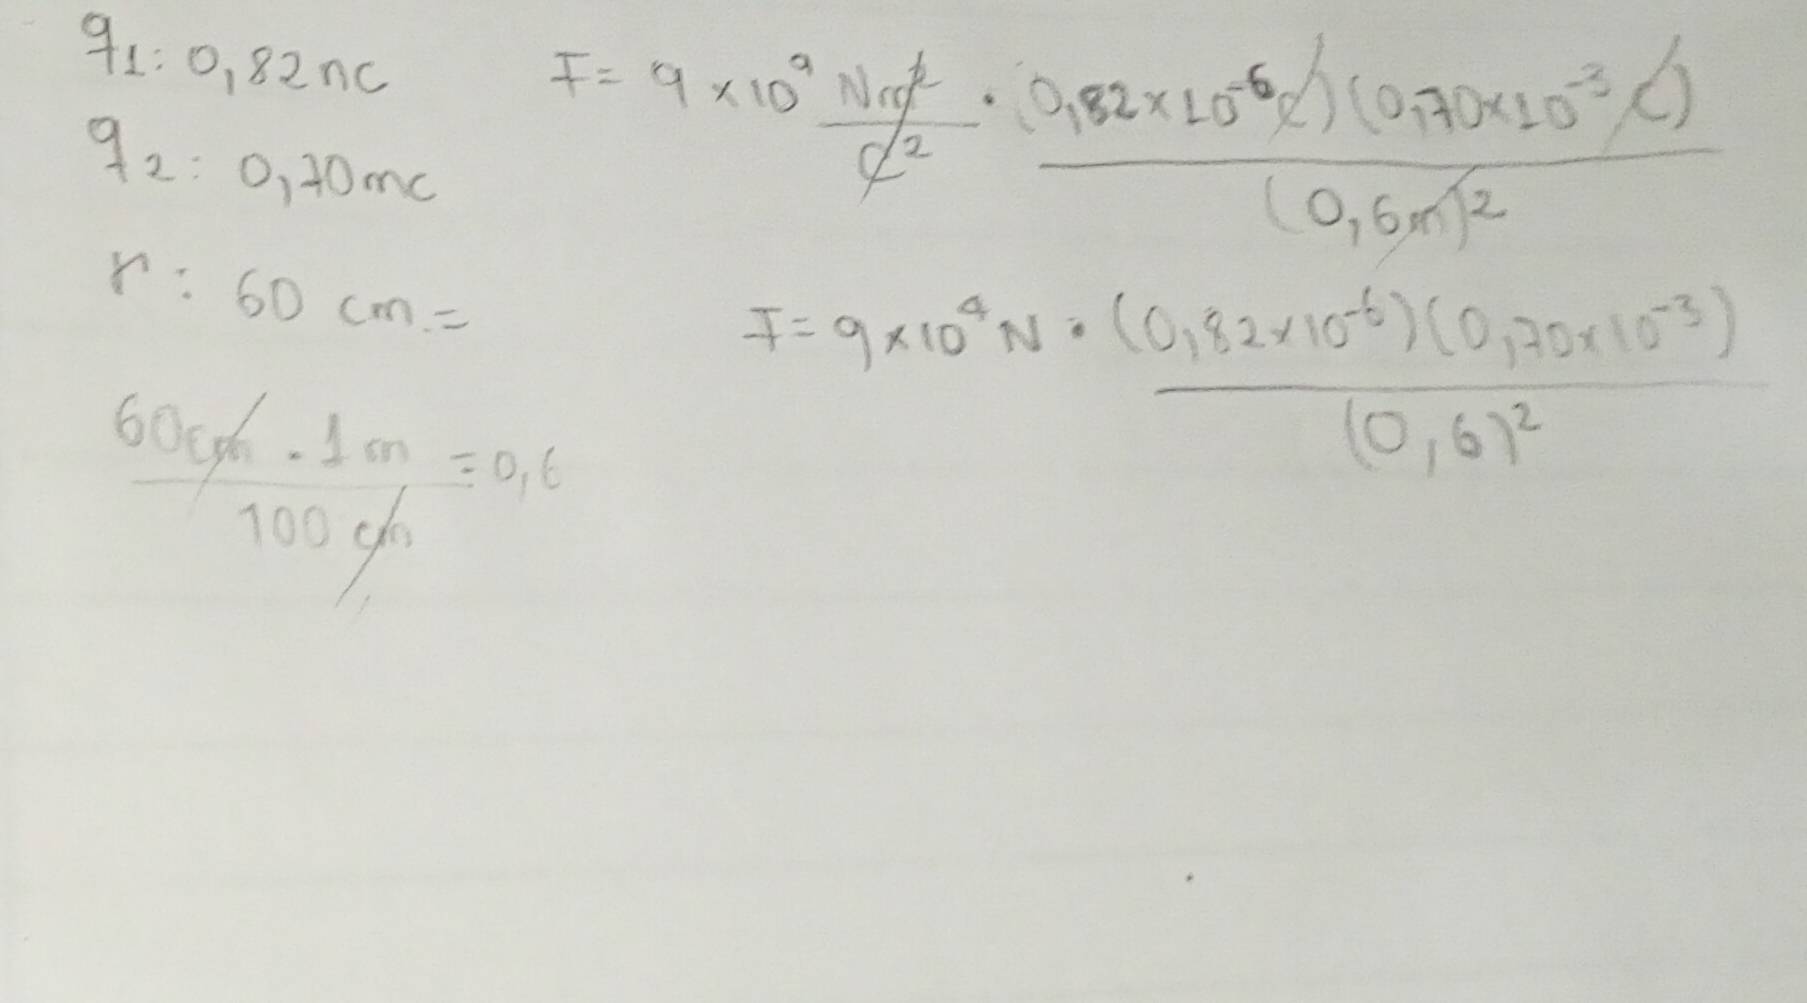 q1: 0,82nc
q2: 0,70mc
r: 60 cm.=
60cm . 1m = 0,6
100 cm
F = 9 x 10⁹ Nm² . (0,82x10⁻⁶c)(0,70x10⁻³ c)
c² (0,6m)²
F = 9x10⁹ N . (0,82x10⁻⁶)(0,70x10⁻³)
(0,6)²